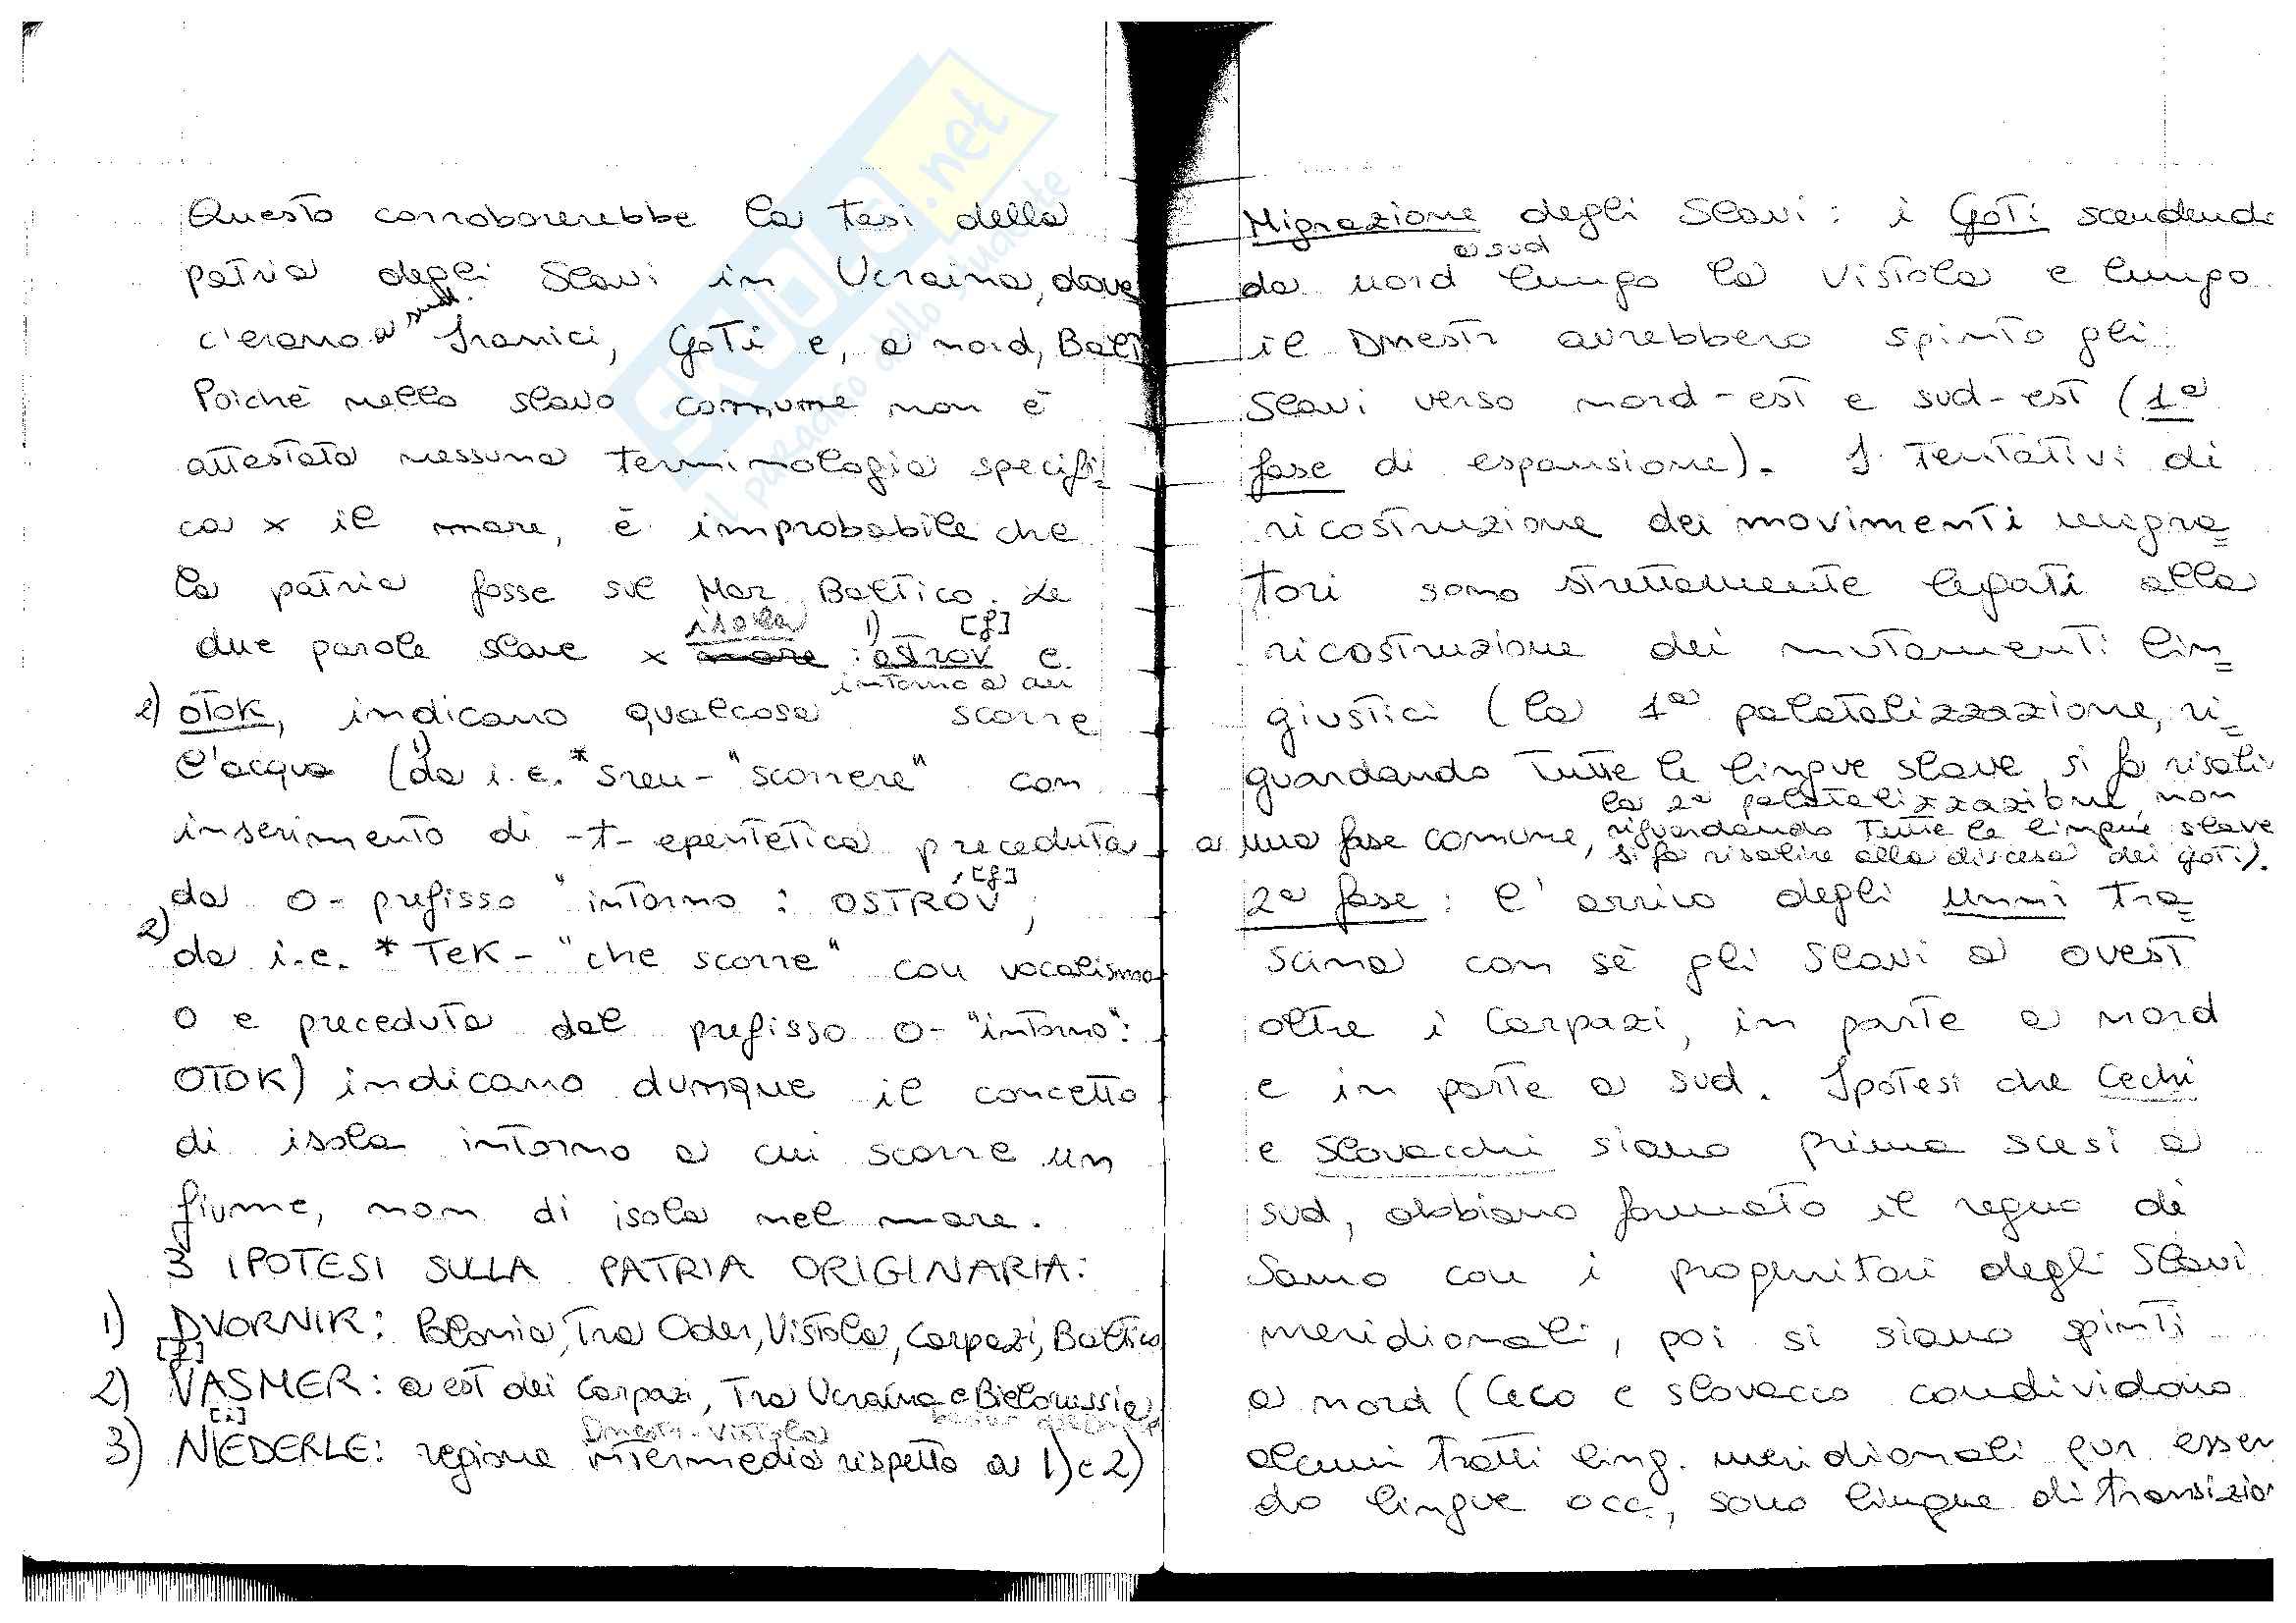 Questo corroborerebbe la tesi della
patria degli Slavi in Ucraina, dove
c'erano a sud Iranici, Goti e, a nord, Balti
Poiché nello slavo comune non è
attestata nessuna terminologia specifi=
ca x il mare, è improbabile che
la patria fosse sul Mar Baltico. Le
isola 1) [f]
due parole slave x mare : ostrov e
intorno a cui
2) otok, indicano qualcosa scorre
l'acqua (1) da i.e. *sreu- "scorrere" con
inserimento di -t- epentetica preceduta
da o- prefisso "intorno : OSTRÓV, [f];
2) da i.e. *Tek- "che scorre" con vocalismo
o e preceduta dal prefisso o- "intorno":
OTOK) indicano dunque il concetto
di isola intorno a cui scorre un
fiume, non di isola nel mare.
3 IPOTESI SULLA PATRIA ORIGINARIA:
1) DVORNIK: Polonia, Tra Oder, Vistola, Carpazi, Baltico
[f]
2) VASMER: a est dei Carpazi, Tra Ucraina e Bielorussia
[i] Dnestr-Vistola
3) NIEDERLE: regione intermedia rispetto a 1) e 2)
Migrazione degli Slavi: i Goti scendendo
a sud
da nord lungo la Vistola e lungo
il Dnestr avrebbero spinto gli
Slavi verso nord-est e sud-est (1a
fase di espansione). I Tentativi di
ricostruzione dei movimenti migra=
tori sono strettamente legati alla
ricostruzione dei mutamenti lin=
guistici (la 1a palatalizzazione, ri=
guardando Tutte le lingue slave, si fa risalire
la 2a palatalizzazione, non
a una fase comune, riguardando Tutte le lingue slave
si fa risalire alla discesa dei goti).
2a fase: l'arrivo degli Unni tra=
scina con sè gli Slavi a ovest
oltre i Carpazi, in parte a nord
e in parte a sud. Ipotesi che Cechi
e Slovacchi siano prima scesi a
sud, abbiano formato il regno di
Samo con i progenitori degli Slavi
meridionali, poi si siano spinti
a nord (Ceco e slovacco condividono
alcuni tratti ling. meridionali pur essen
do lingue occ., sono lingue di transizion
SKUOLA.net
il paradiso dello studente